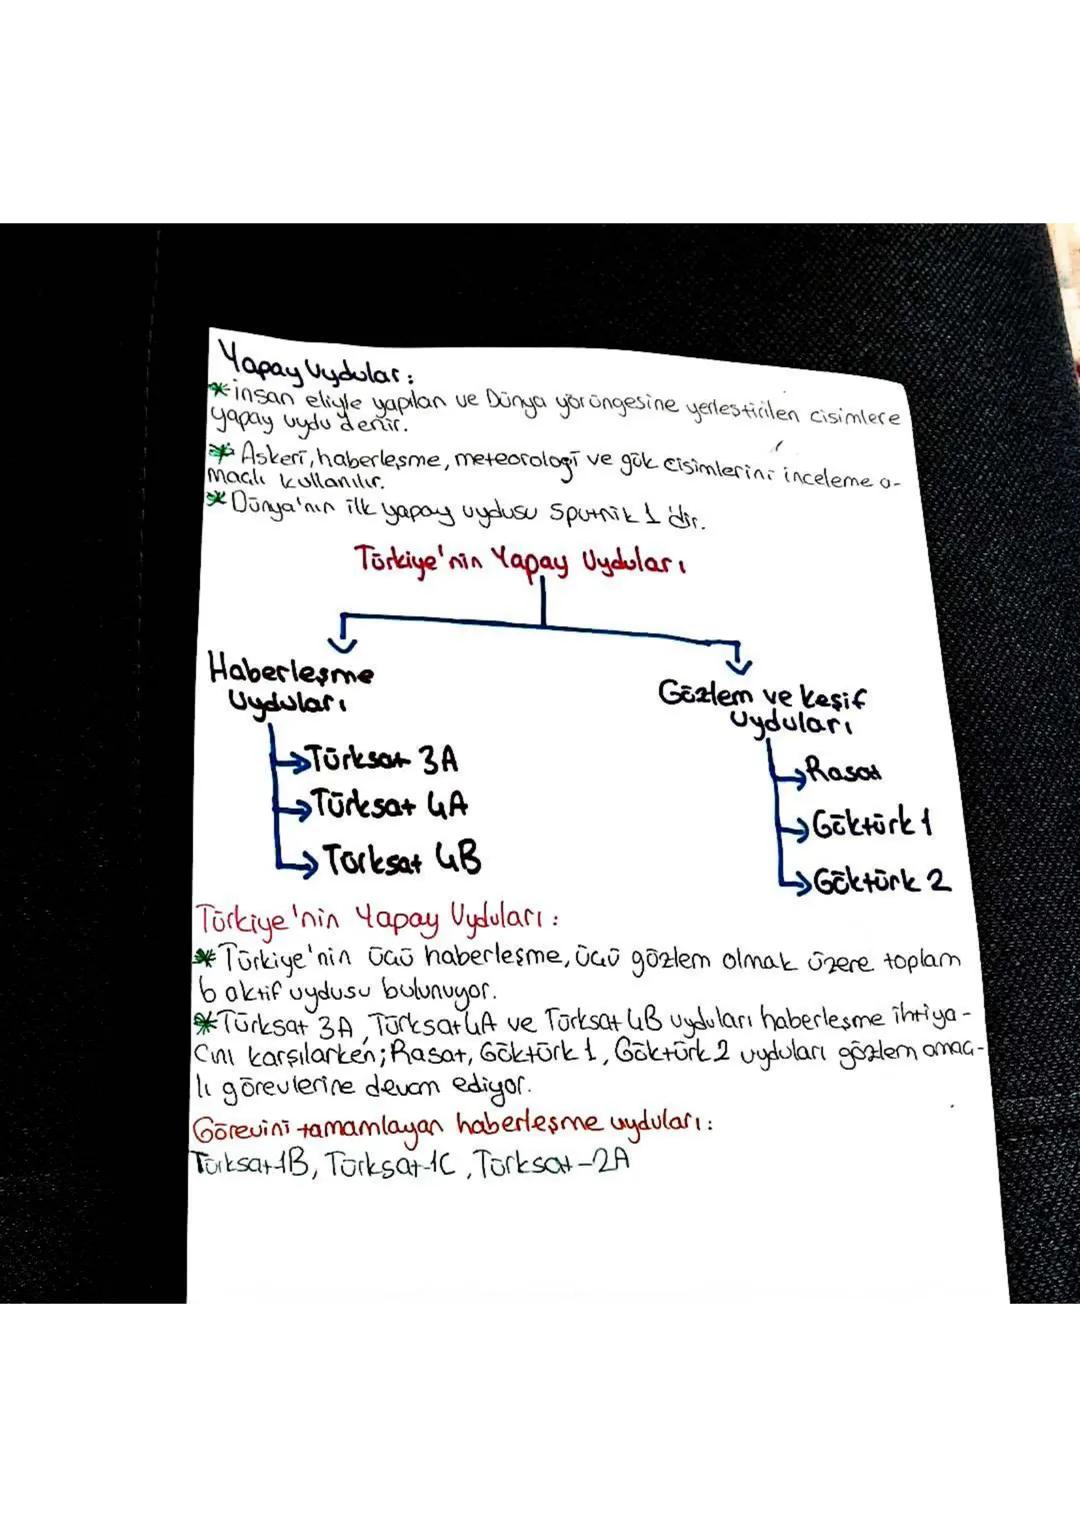 Yapay Uydular:
* insan eliyle yapılan ve Dünya yörüngesine yerlestirilen cisimlere
yapay uydu denir.
* Askeri, haberleşme, meteoroloji ve gök cisimlerini inceleme a-
maçlı kullanılır.
* Dünya'nın ilk yapay uydusu Sputnik 1'dir.
Türkiye'nin Yapay Uyduları
Haberleşme
Uyduları
Gözlem ve keşif
Uyduları
→Türksat 3A
→Rasat
→Türksat 4A
→Göktürk 1
→Türksat 4B
→Göktürk 2
Türkiye'nin Yapay Uyduları:
* Türkiye'nin üçü haberleşme, üçü gözlem olmak üzere toplam
6 aktif uydusu bulunuyor.
* Türksat 3A, Türksat 4A ve Türksat 4B uyduları haberleşme ihtiya-
cını karşılarken; Rasat, Göktürk 1, Göktürk 2 uyduları gözlem amaç-
lı görevlerine devam ediyor.
Görevini tamamlayan haberleşme uyduları:
Türksat-1B, Türksat-1C, Türksat-2A